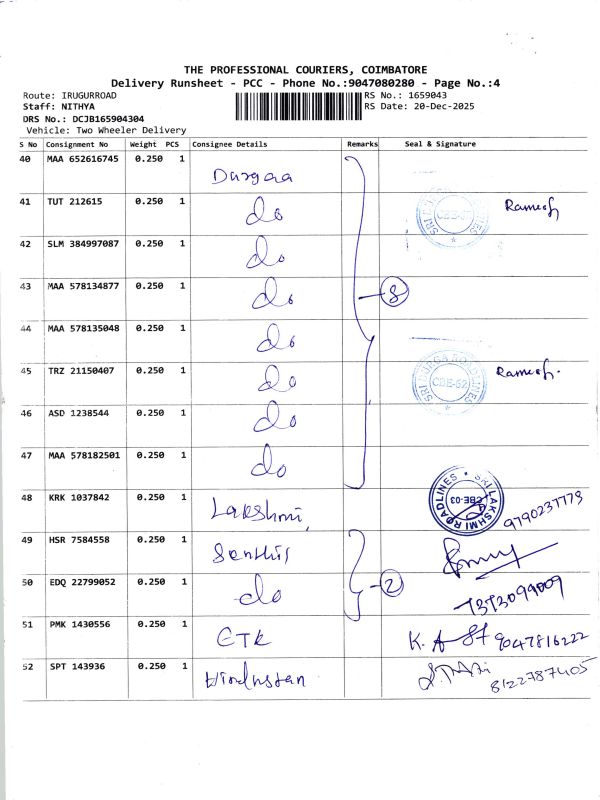 THE PROFESSIONAL COURIERS, COIMBATORE
Delivery Runsheet - PCC - Phone No.:9047080280 - Page No.:4
Route: IRUGURROAD RS No.: 1659043
Staff: NITHYA RS Date: 20-Dec-2025
DRS No.: DCJB165904304
Vehicle: Two Wheeler Delivery
S No Consignment No Weight PCS Consignee Details Remarks Seal & Signature
40 MAA 652616745 0.250 1 Durgaa
41 TUT 212615 0.250 1 do Ramesh
42 SLM 384997087 0.250 1 do
43 MAA 578134877 0.250 1 do 8
44 MAA 578135048 0.250 1 do
45 TRZ 21150407 0.250 1 do SRI DURGA ROADLINES CBE-62 Ramesh.
46 ASD 1238544 0.250 1 do
47 MAA 578182501 0.250 1 do
48 KRK 1037842 0.250 1 Lakshmi, SRI LAKSHMI ROADLINES CBE-03 9790237773
49 HSR 7584558 0.250 1 Senthil
50 EDQ 22799052 0.250 1 do 2 7373099009
51 PMK 1430556 0.250 1 CTR K. A 9047816222
52 SPT 143936 0.250 1 Hindustan 8122787405